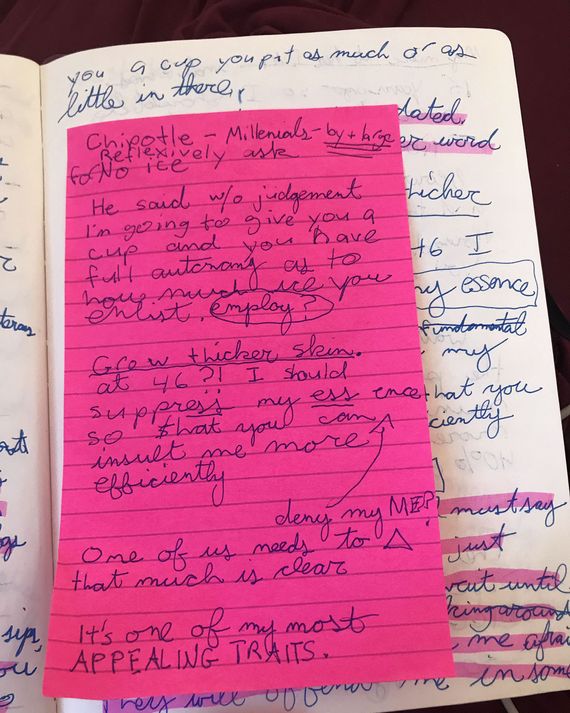 you a cup you put as much or as
little in there,
dated,
er word
Chipotle – Millenials – by + large
Reflexively ask
for No ice
thicker
He said w/o judgement
I'm going to give you a
cup and you have
full autonomy as to
how much ice you
enlist. employ?
46 I
my essence
fundamental
my
Grow thicker skin.
at 46?! I should
suppress my essence that you
so that you can
ciently
insult me more
efficiently
deny my ME?
must say
One of us needs to △
just
that much is clear
wait until
king around
It's one of my most
me afrai
APPEALING TRAITS.
They will offend me in som